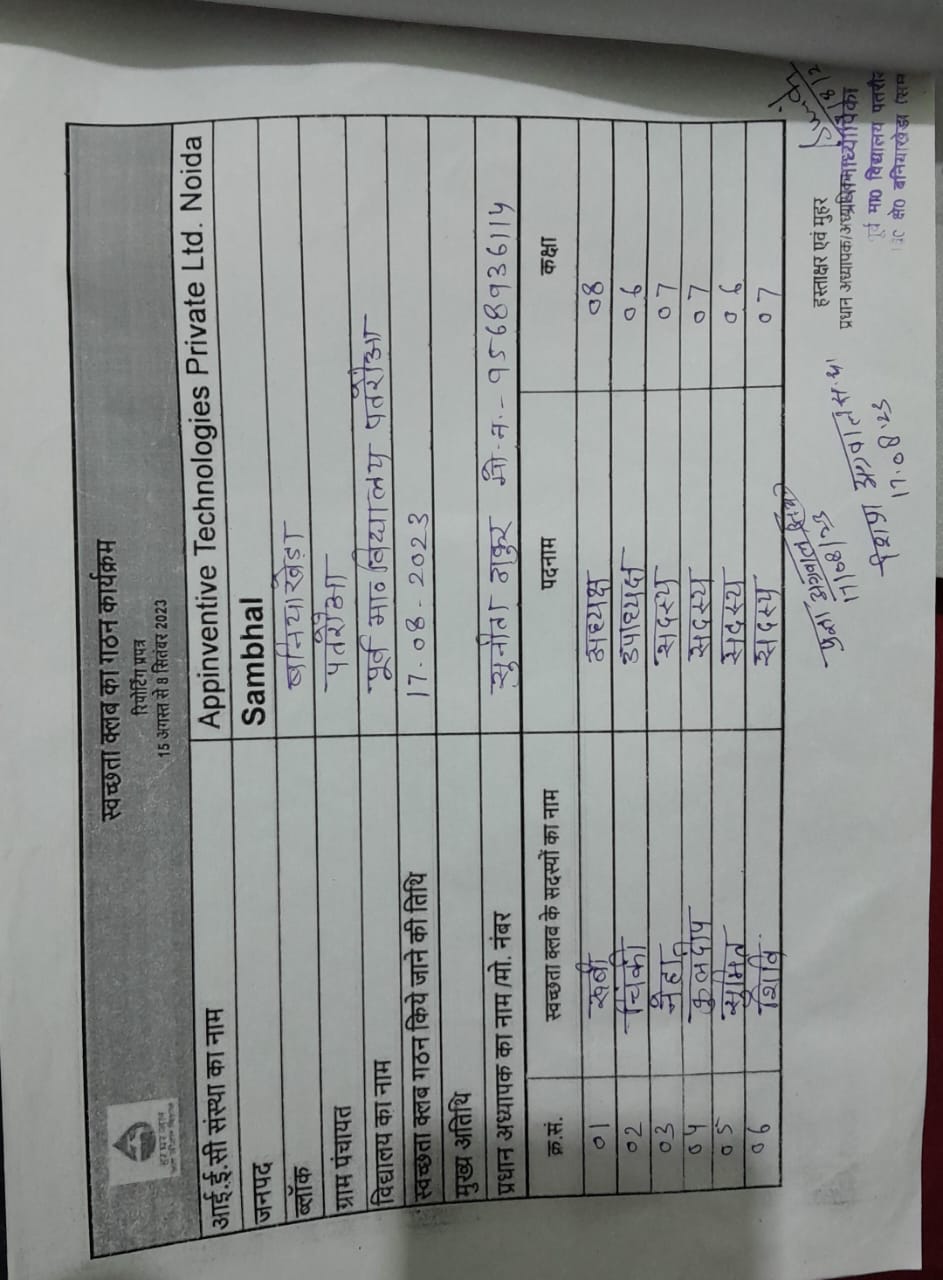 हर घर जल
स्वच्छता क्लब का गठन कार्यक्रम
रिपोर्टिंग प्रपत्र
15 अगस्त से 8 सितंबर 2023
आई.ई.सी संस्था का नाम Appinventive Technologies Private Ltd. Noida
जनपद Sambhal
ब्लॉक बनियाखेड़ा
ग्राम पंचायत पतरौआ
विद्यालय का नाम पूर्व मा० विद्यालय पतरौआ
स्वच्छता क्लब गठन किये जाने की तिथि 17-08-2023
मुख्य अतिथि
प्रधान अध्यापक का नाम/मो. नंबर सुनीता ठाकुर मो.न.-9568936114
क्र.सं. स्वच्छता क्लब के सदस्यों का नाम पदनाम कक्षा
01 रूबी अध्यक्ष 08
02 पिंकी उपाध्यक्ष 06
03 नेहा सदस्य 07
04 कुलदीप सदस्य 07
05 सुमित सदस्य 06
06 शिव सदस्य 07
हस्ताक्षर एवं मुहर
प्रधान अध्यापक/
पू० मा० विद्यालय
बनियाखेड़ा
अग्रवाल
17/08/23
अग्रवाल स.अ.
17.08.23